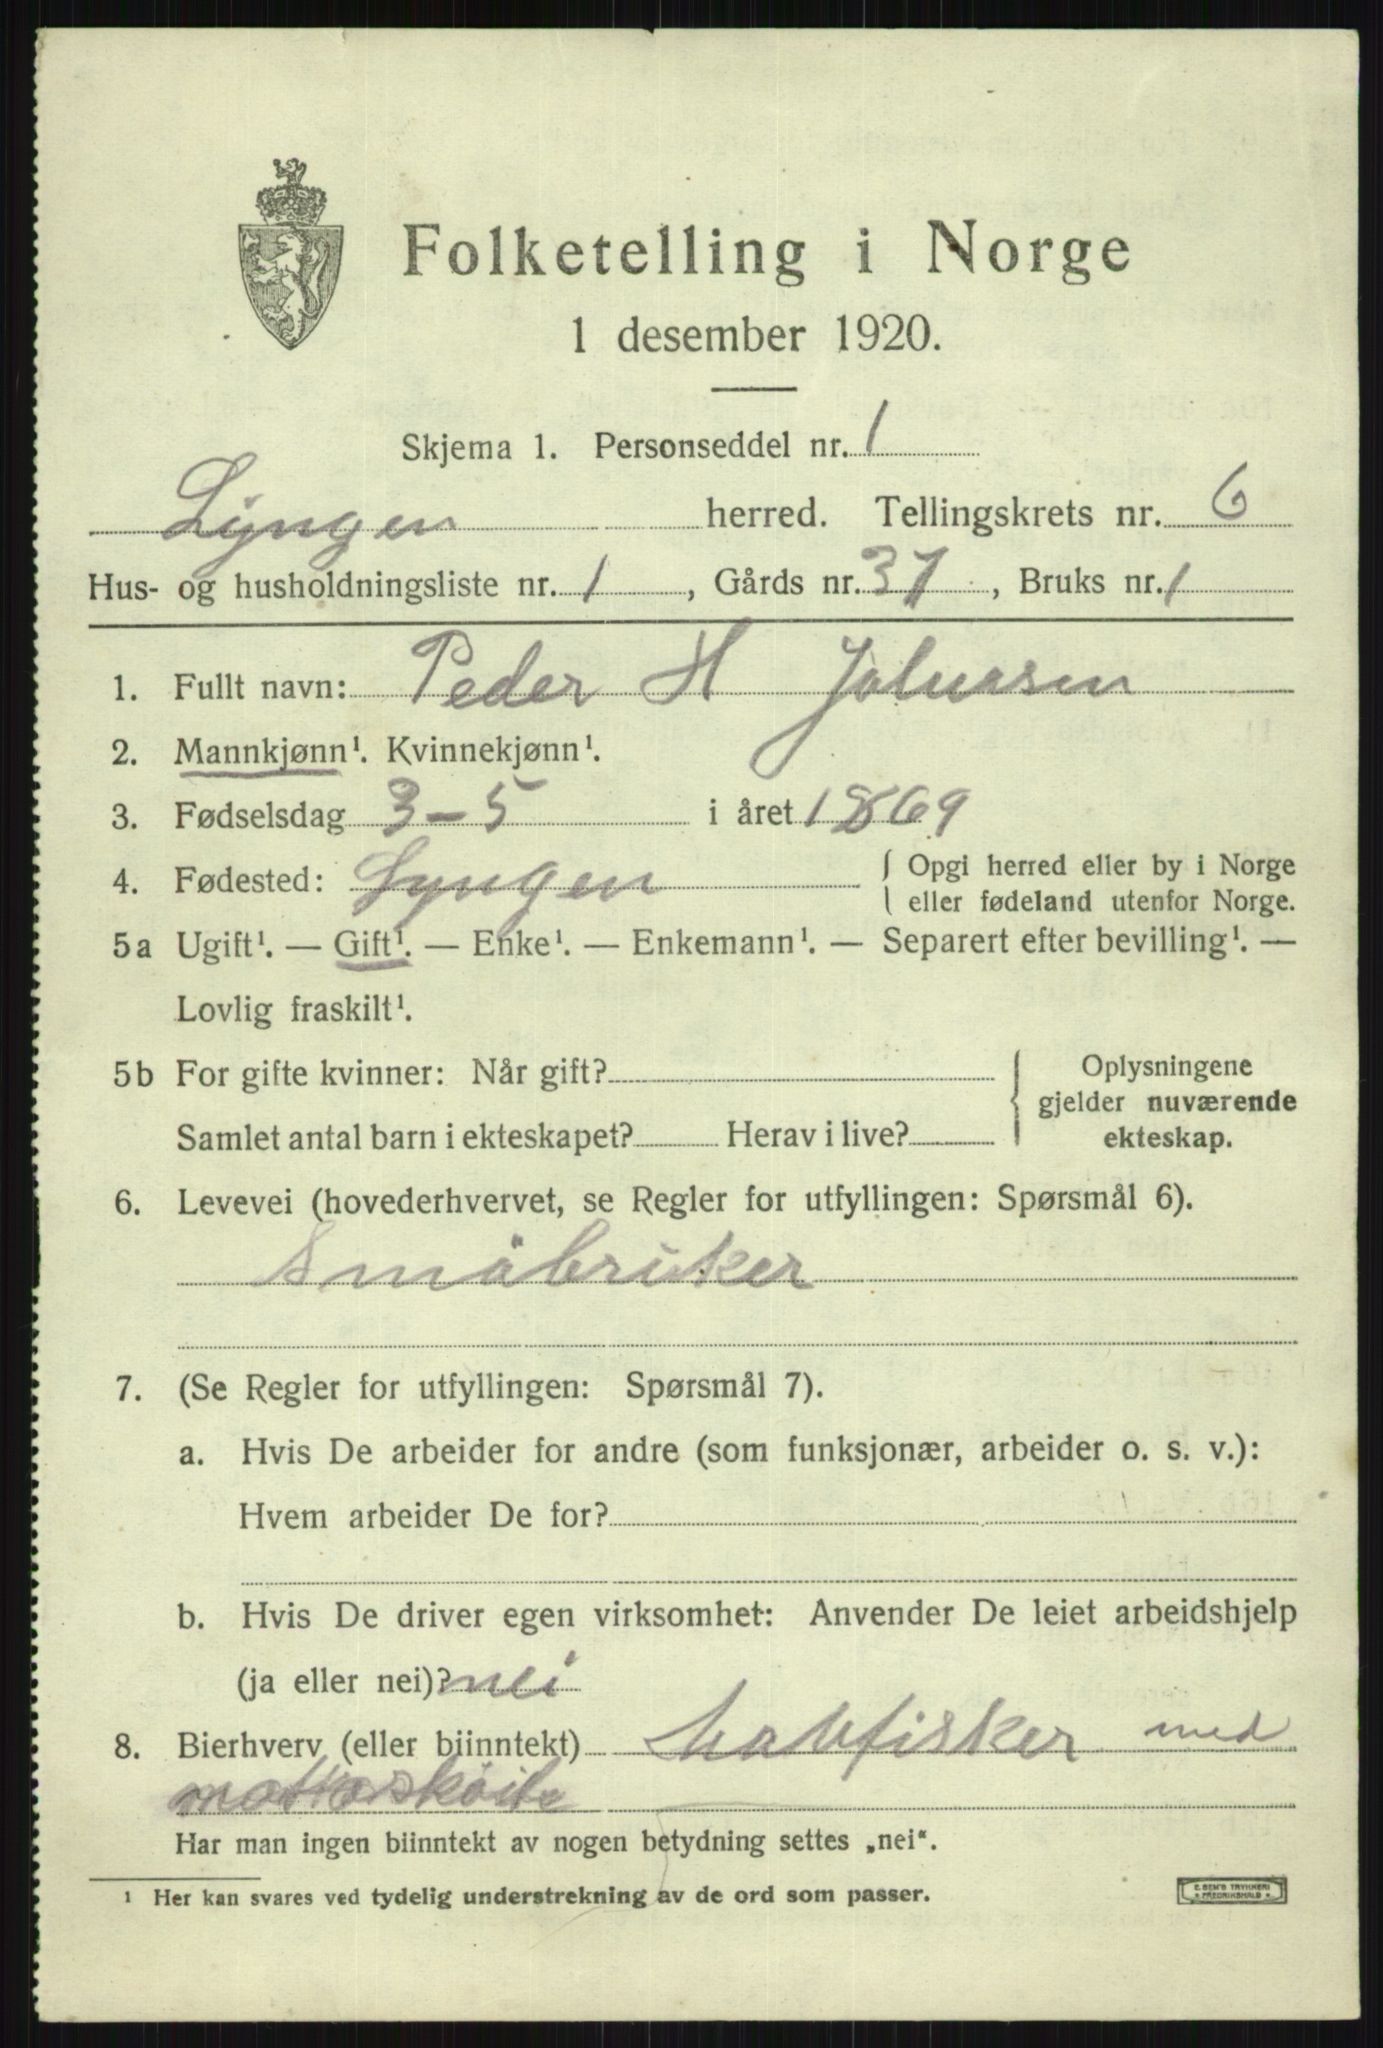 Folketelling i Norge
1 desember 1920.
Skjema 1. Personseddel nr. 1
Lyngen herred. Tellingskrets nr. 6
Hus- og husholdningsliste nr. 1, Gårds nr. 37, Bruks nr. 1
1. Fullt navn: Peder H Johnsen
2. Mannkjønn¹. Kvinnekjønn¹.
3. Fødselsdag 3-5 i året 1869
4. Fødested: Lyngen { Opgi herred eller by i Norge
eller fødeland utenfor Norge.
5a Ugift¹. — Gift¹. — Enke¹. — Enkemann¹. — Separert efter bevilling¹. —
Lovlig fraskilt¹.
5b For gifte kvinner: Når gift?
Samlet antal barn i ekteskapet? Herav i live?
Oplysningene
gjelder nuværende
ekteskap.
6. Levevei (hovederhvervet, se Regler for utfyllingen: Spørsmål 6).
Småbruker
7. (Se Regler for utfyllingen: Spørsmål 7).
a. Hvis De arbeider for andre (som funksjonær, arbeider o. s. v.):
Hvem arbeider De for?
b. Hvis De driver egen virksomhet: Anvender De leiet arbeidshjelp
(ja eller nei)? nei
8. Bierhverv (eller biinntekt) med
Har man ingen biinntekt av nogen betydning settes „nei“.
¹ Her kan svares ved tydelig understrekning av de ord som passer.